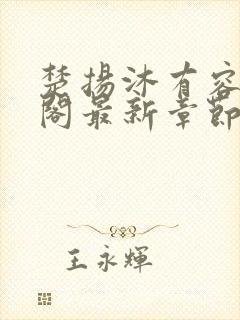 楚揚沐有容
閣最新章節
王永輝